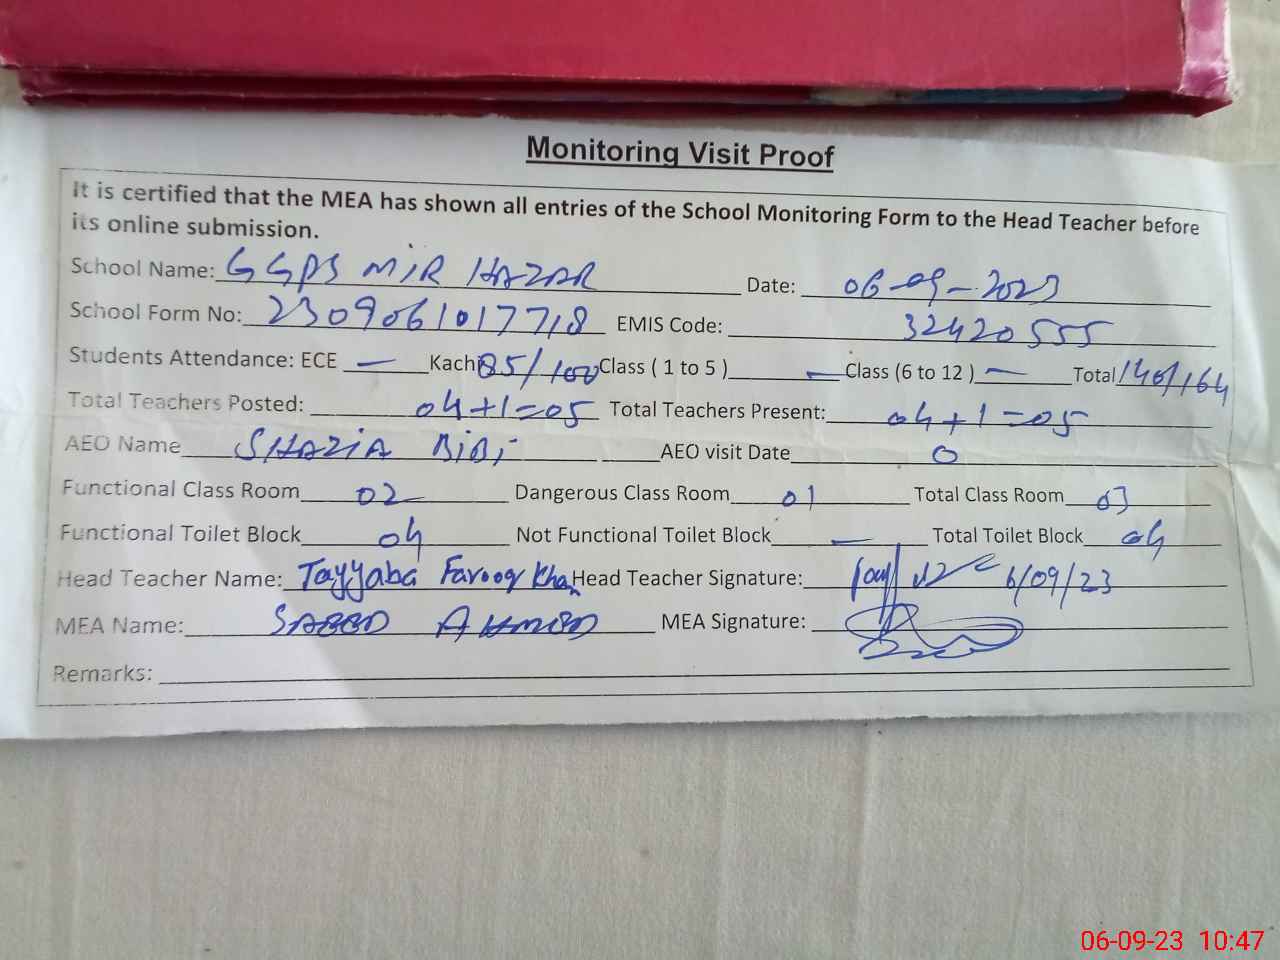 Monitoring Visit Proof
It is certified that the MEA has shown all entries of the School Monitoring Form to the Head Teacher before
its online submission.
School Name: GGPS MIR HAZAR Date: 06-09-2023
School Form No: 2309061017718 EMIS Code: 32420555
Students Attendance: ECE — Kachi 85/100 Class ( 1 to 5 ) — Class (6 to 12 ) — Total 140/164
Total Teachers Posted: 04+1=05 Total Teachers Present: 04+1=05
AEO Name SHAZIA BiBi AEO visit Date 0
Functional Class Room 02 Dangerous Class Room 01 Total Class Room 03
Functional Toilet Block 04 Not Functional Toilet Block — Total Toilet Block 04
Head Teacher Name: Tayyaba Farooq Khan Head Teacher Signature: 6/09/23
MEA Name: SAEED AHMED MEA Signature:
Remarks:
06-09-23 10:47